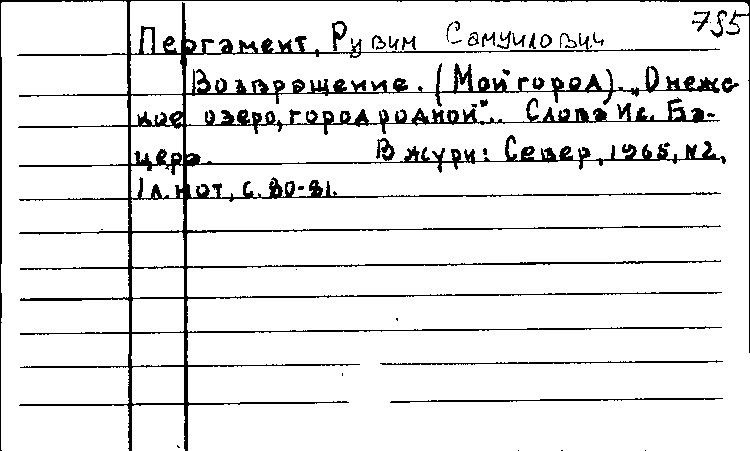 785
Пергамент, Рувим Самуилович
Возвращение. (Мой город). „Онежс-
кое озеро, город родной".. Слова Ис. Ба-
цера. В журн: Север, 1965, N2,
1 л. нот, с. 80-81.